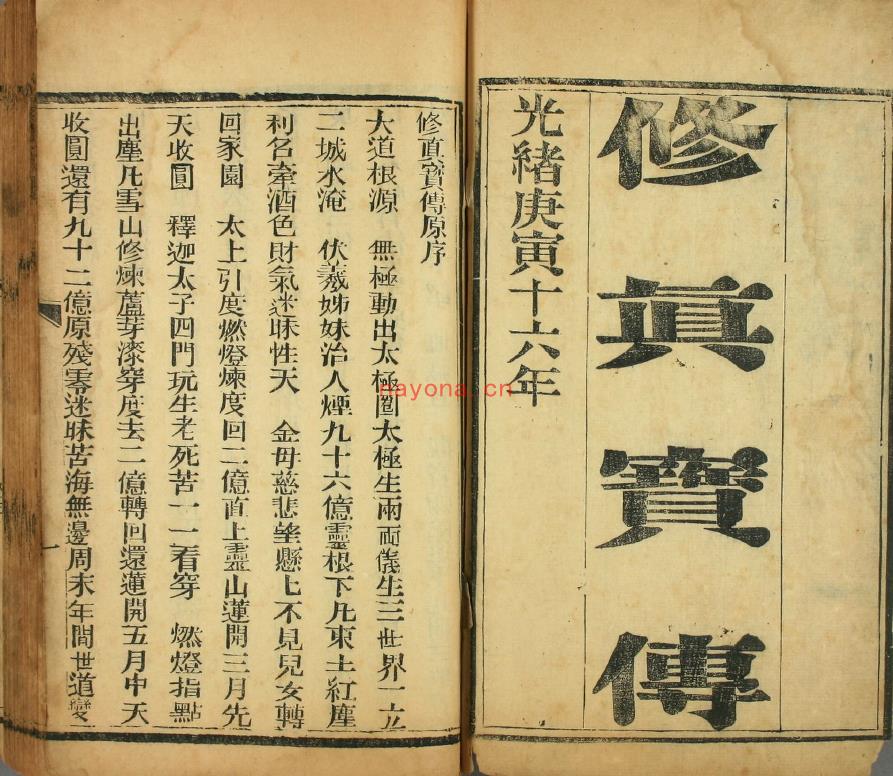 修真寳傳
光緒庚寅十六年
修真寳傳原序
大道根源 無極動出太極圖太極生兩而儀生三世界一立
二城水淹 伏羲姊妹治人煙九十六億靈根下凡東土紅塵
利名牽酒色財氣迷昧性天 金母慈悲望懸七不見兒女轉
回家園 太上引度燃燈煉度回二億直上靈山蓮開三月先
天收圓 釋迦太子四門玩生老死苦一一看穿 燃燈指點
出塵凡雪山修煉蘆芽漆穿度去二億轉回還蓮開五月中天
收圓還有九十二億原殘零迷昧苦海無邊周末年間世道變
一
nayona.cn